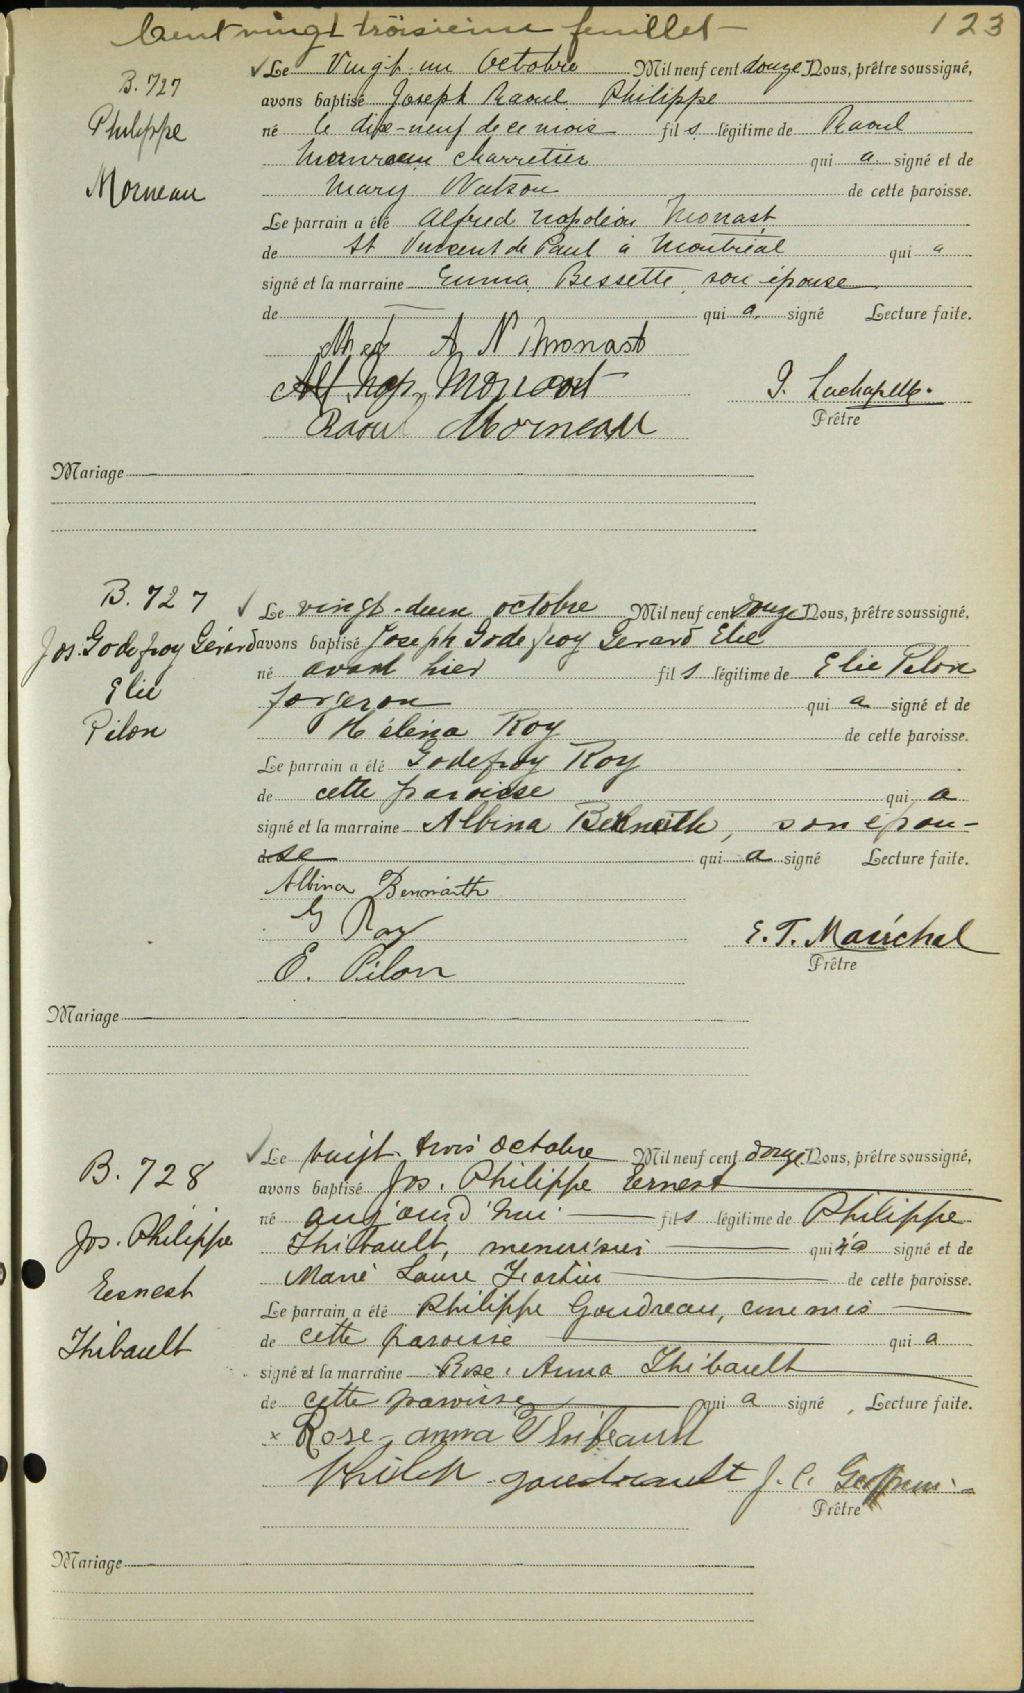 Cent vingt troisieme feuillet 123
B. 727
Philippe
Morneau
Le Vingt-un Octobre Mil neuf cent douze Nous, prêtre soussigné,
avons baptisé Joseph Raoul Philippe
né le dix-neuf de ce mois fils légitime de Raoul
Morneau charretier qui a signé et de
Mary Watson de cette paroisse.
Le parrain a été Alfred Napoléon Monast
de St Vincent de Paul à Montréal qui a
signé et la marraine Emma Bessette son épouse
de qui a signé Lecture faite.
A N Monast
Alf. Nap. Monast
Raoul Morneau
J. Lachapelle.
Prêtre
Mariage
B. 727
Jos. Godefroy Gérard
Elie
Pilon
Le vingt-deux octobre Mil neuf cent douze Nous, prêtre soussigné.
avons baptisé Joseph Godefroy Gerard Elie
né avant hier fils légitime de Elie Pilon
forgeron qui a signé et de
Hélèna Roy de cette paroisse.
Le parrain a été Godefroy Roy
de cette paroisse qui a
signé et la marraine Albina , son épou-
de se qui a signé Lecture faite.
Albina
G Roy
E. Pilon
E. T. Maréchal
Prêtre
Mariage
B. 728
Jos. Philippe
Ernest
Thibault
Le vingt-trois octobre Mil neuf cent douze Nous, prêtre soussigné,
avons baptisé Jos. Philippe Ernest
né aujourd'hui fils légitime de Philippe
Thibault, menuisier qui a signé et de
Marie Laure Fortier de cette paroisse.
Le parrain a été Philippe Goudreau, commis
de cette paroisse qui a
signé et la marraine Rose-Anna Thibault
de cette paroisse qui a signé Lecture faite.
x Rose-anna Thibeault
Philip goudreault
J. C.
Prêtre
Mariage